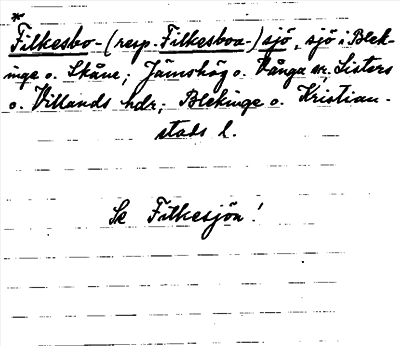 *
Filkesbo- (resp. Filkesboa-) sjö, sjö i Blek-
inge o. Skåne; Jämshög o. Vånga snr, Listers
o. Villands hdr; Blekinge o. Kristian-
stads l.
Se Filkesjön!